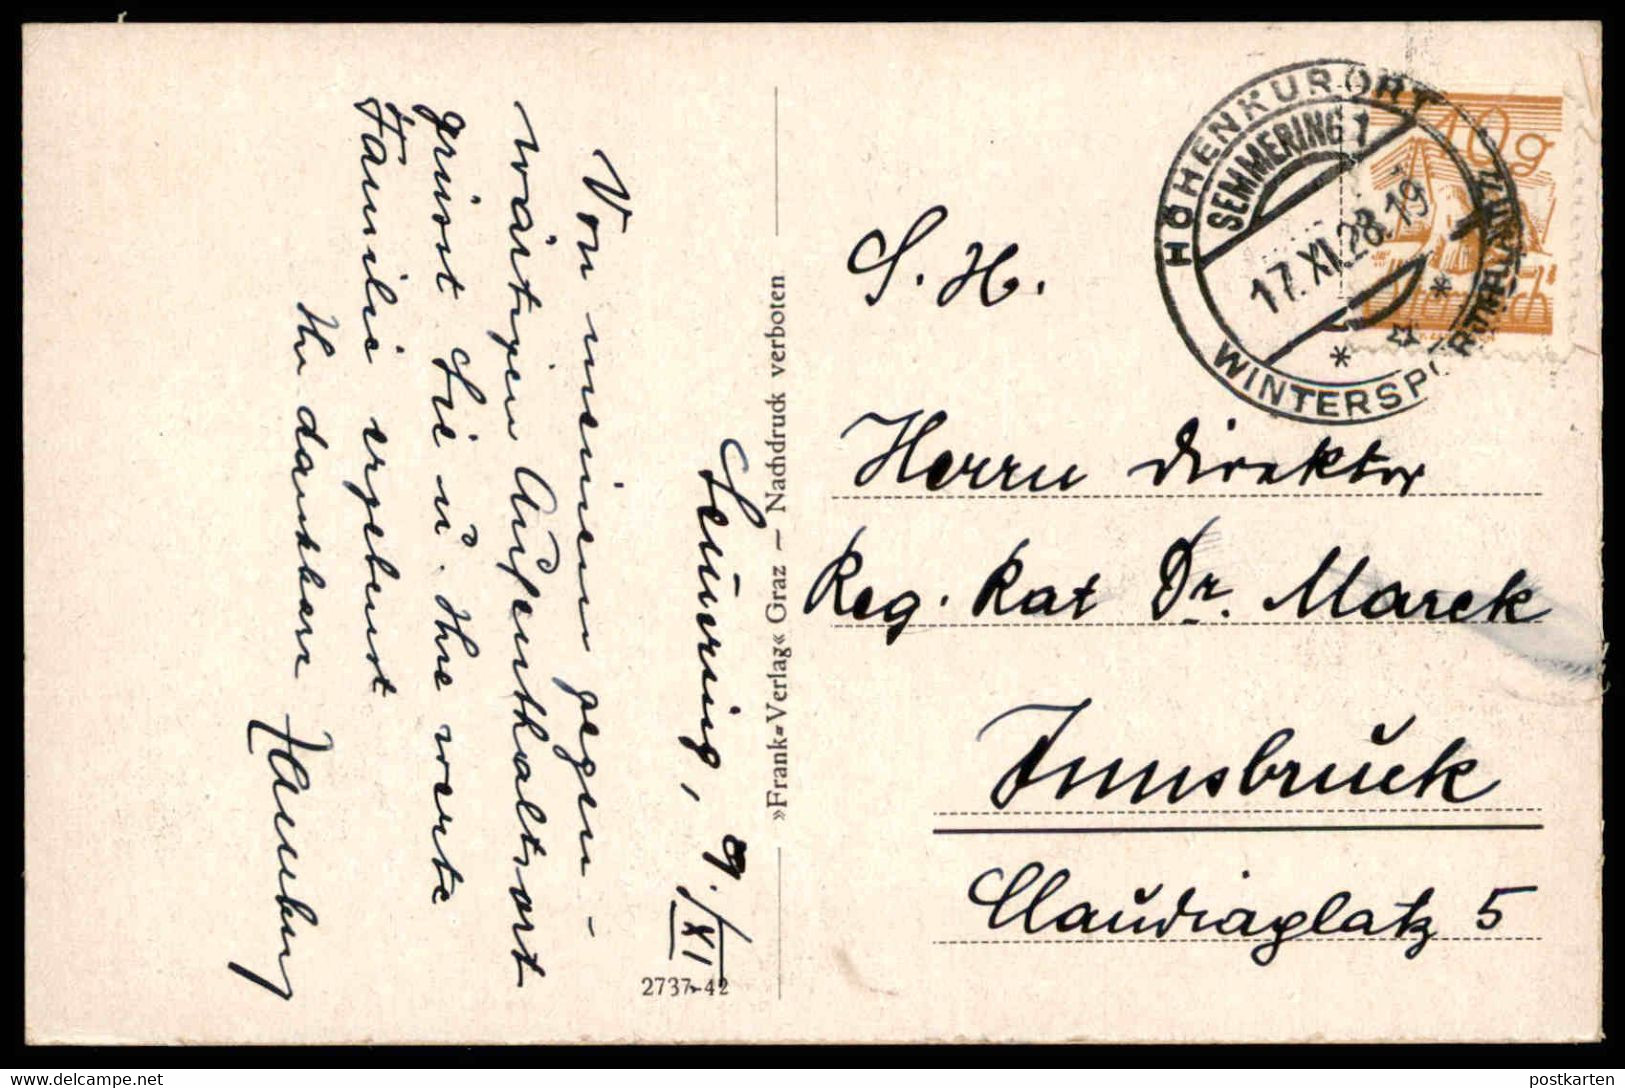 Semmering, 9./XI
Von meinem gegen-
wärtigen Aufenthaltsort
grüsst Sie u. Ihre werte
Familie ergebenst
Ihr dankbarer
»Frank-Verlag« Graz – Nachdruck verboten
2737-42
HÖHENKURORT
SEMMERING 1
17.XI.28.19
* ☆ *
WINTERSPORT
10g
S. H.
Herrn Direktor
Reg. Rat Dr. Marek
Innsbruck
Claudiaplatz 5
postkarten
www.delcampe.net